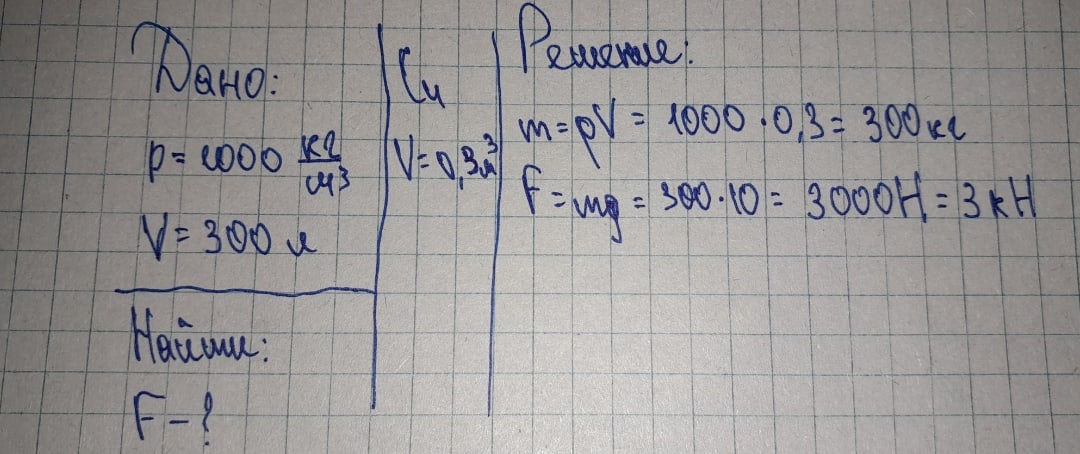 Дано:
ρ = 1000 кг/м³
V = 300 л
Найти:
F - ?
Си
V = 0,3 м³
Решение:
m = ρV = 1000 · 0,3 = 300 кг
F = mg = 300 · 10 = 3000 Н = 3 кН